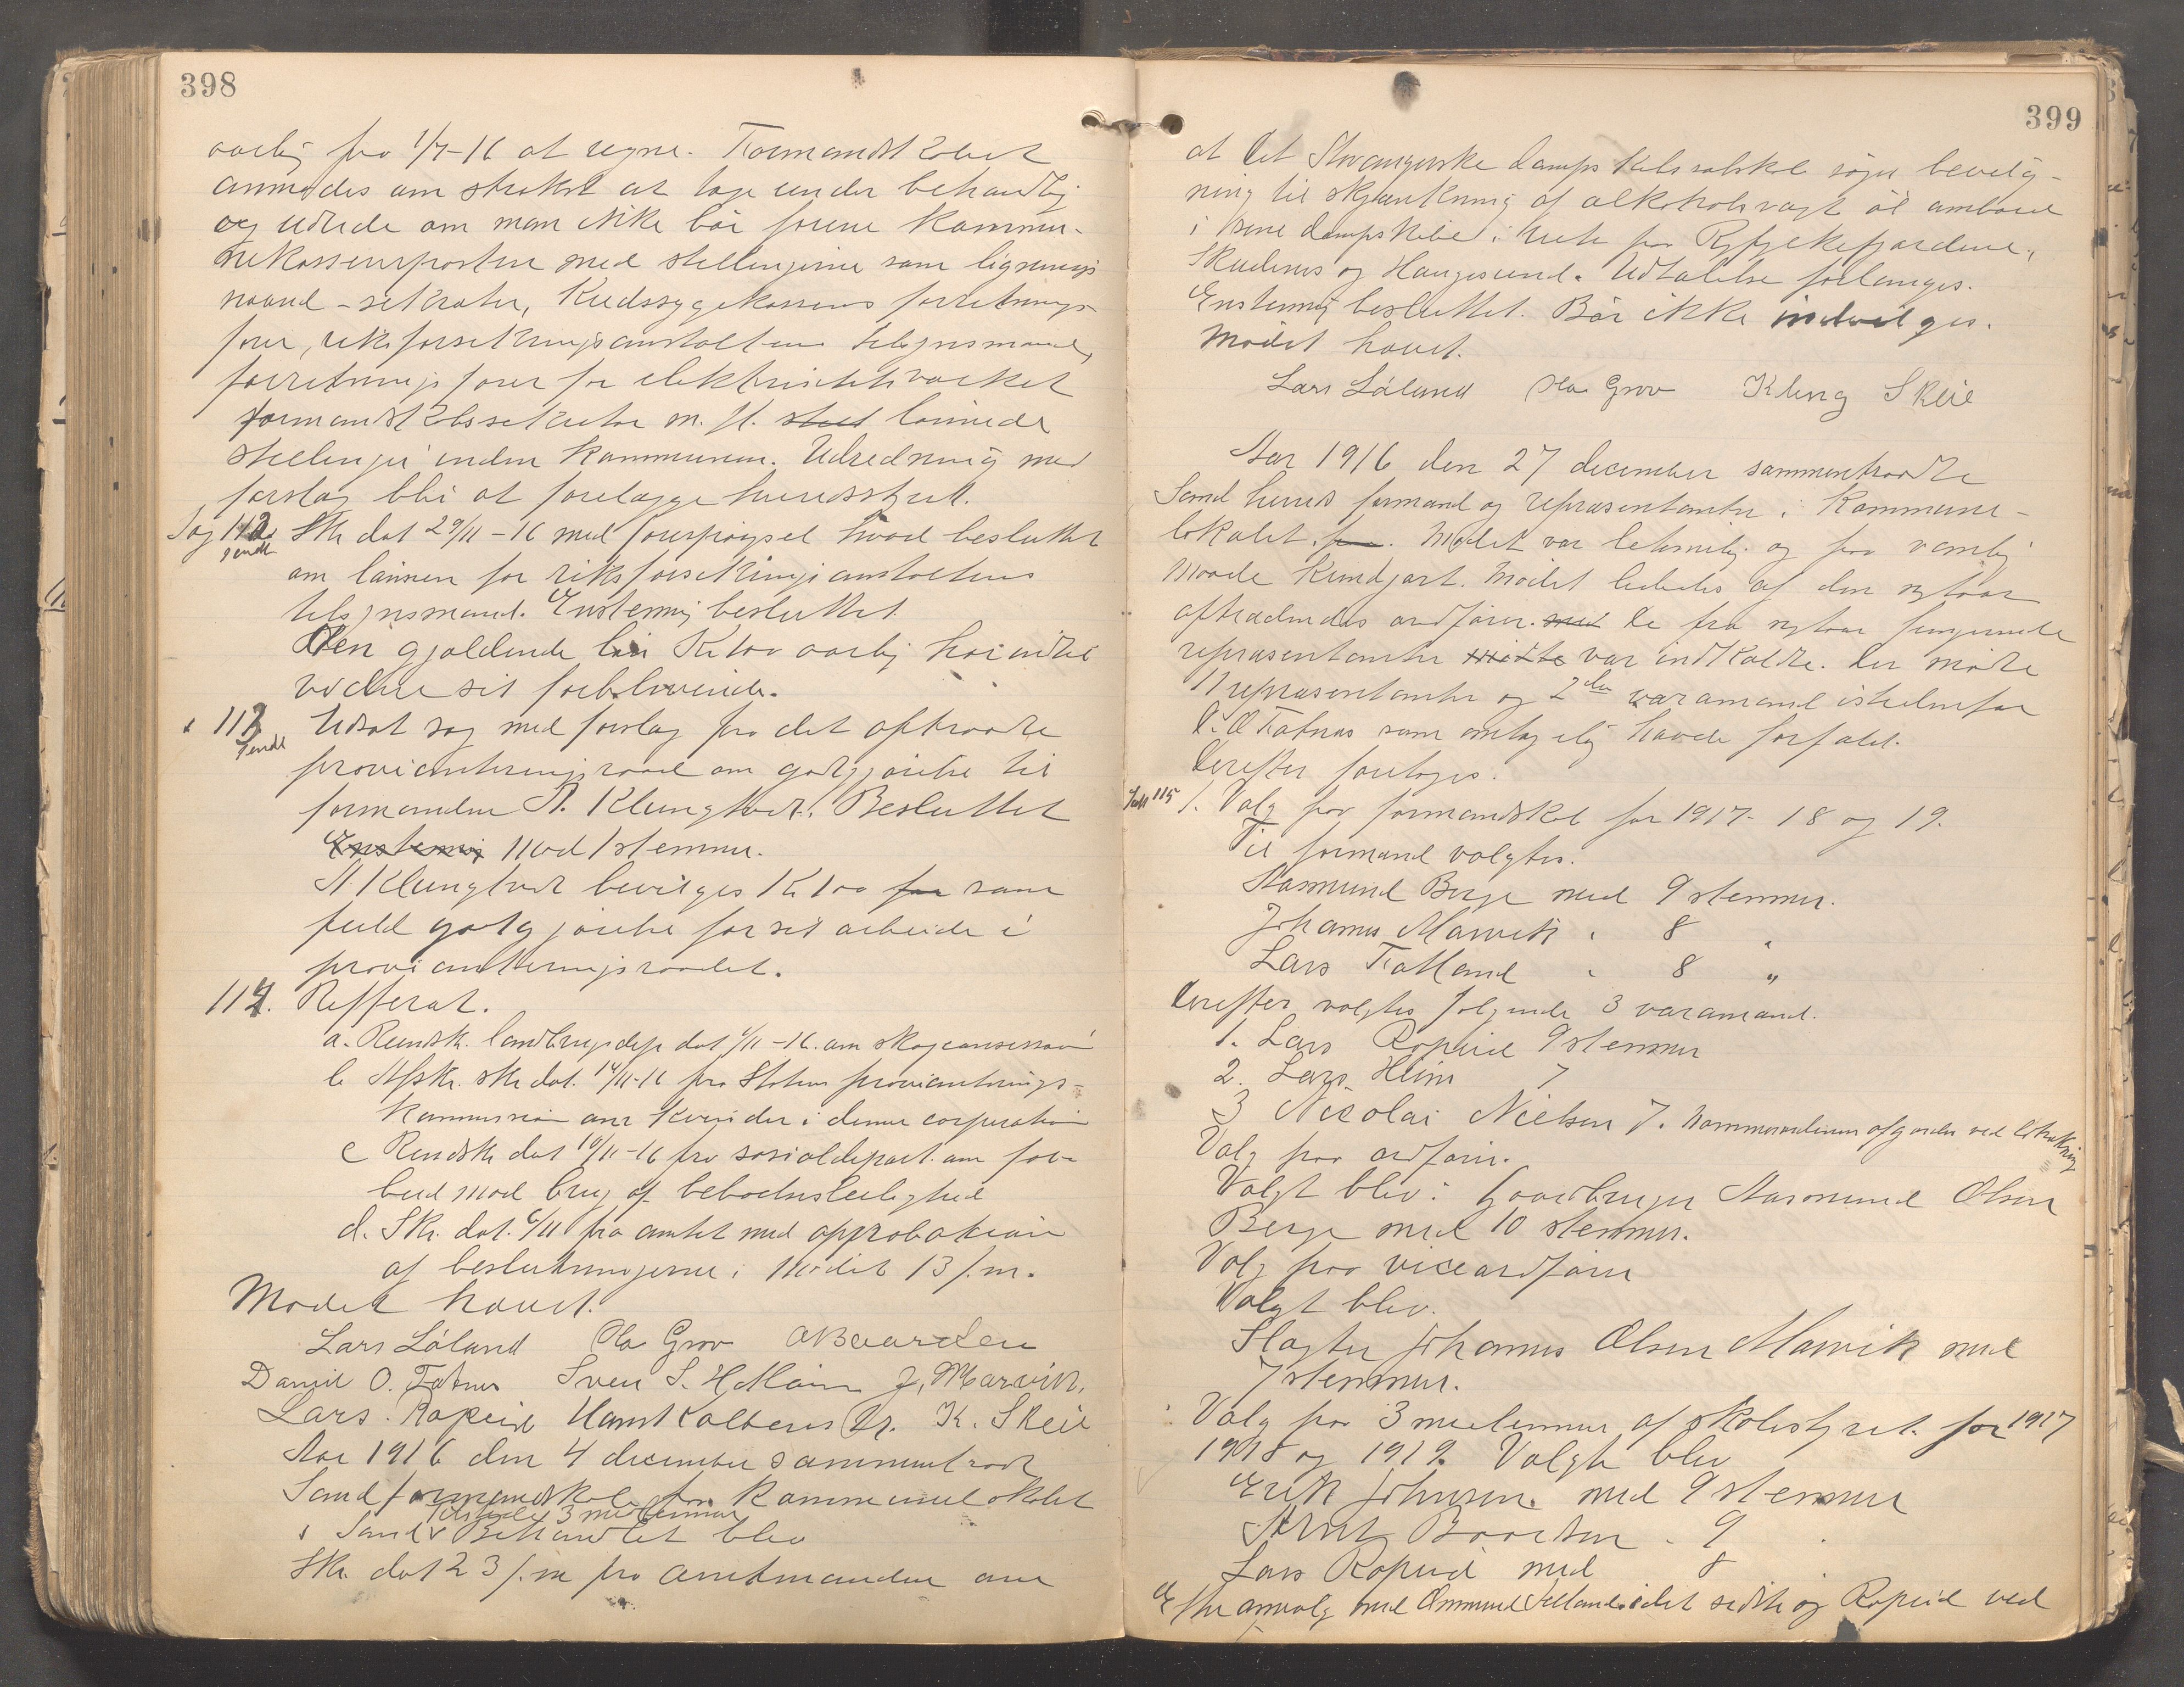 398
aarlig fra 1/7-16 at regne. Formandskabet
anmodes om straks at tage under behandling
og utrede om man ikke bør forene kommu-
nekasserposten med stillingerne som lignings
raad-sekretær, Kredssygekassens forretnings-
fører, riksforsikringsanstaltens tilsynsmand,
forretningsfører for elektricitetsverket
formandskabssekretær m. fl. lønnede
stillinger inden kommunen. Udredning med
forslag blir at forelægge herredsstyret.
Sag 112. Skr dat 29/11-16 med forespørgsel hvad besluttet
sendt
om lønnen for riksforsikringsanstaltens
tilsynsmand. Enstemmig besluttet.
Den gjældende løn Kr 100 aarlig har indtil
videre sit forblivende.
" 113 Utsat sag med forslag fra det aftraadte
sendt
provianteringsraad om godtgjørelse til
formanden A. Klungtvedt. Besluttet
Enstemmig mod 1 stemme.
A Klungtvedt bevilges Kr 100 for som
fuld godtgjørelse for sit arbeide i
provianteringsraadet.
114. Refferat.
a. Rundsk. landbrugsdep dat /11-16. om skogconsession
b Afskr. skr dat. 14/11-16 fra Statens provianterings-
kommission om kvinder i denne corporation
c Rundskr dat 10/11-16 fra socialdepart. om for-
bud mod brug af beboelsesleilighed
d. Skr. dat. 6/11 fra amtet med approbation
af beslutningerne i mødet 13 f.m.
Mødet hævet.
Lars Løland Ola Grov A Baardsen
Daniel O. Fatnes Sven S. Hellain J, Marvik,
Lars. Ropeid Hans Kaltveit K. Skeie
Aar 1916 den 4 december sammentraadte
Sand formandskab i kommunelokalet
Tilstede 3 medlemmer
i Sand Behandlet blev
Skr. dat 23 f.m fra Amtmanden om
399
at Det Stavangerske Dampskibsselskab søger bevilg-
ning til skjænkning af alkoholsvagt øl ombord
i sine dampskibe i rute paa Ryfylkefjordene,
Skudenes og Haugesund. Udtalelse forlanges.
Enstemmig besluttet. Bør ikke indvilges.
Mødet hævet.
Lars Løland Ola Grov Kleng Skeie
Aar 1916 den 27 december sammentraadte
Sand herreds formænd og repræsentanter i Kommune-
lokalet. Mødet var betimelig og paa vanlig
Maade kundgjort. Mødet lededes af den nytaar
aftrædendes ordfører. med De fra nytaar fungerende
repræsentanter møtte var indkaldte. Der møtte
11 repræsentanter og 2den varamand istedenfor
D. O Fatnes som antagelig havde forfald.
Derefter foretoges:
Sak 115 1. Valg paa formandskab for 1917- 18 og 19.
Til formænd valgtes.
Aasmund Berge med 9 stemmer.
Johannes Marvik " 8 "
Lars Fatland " 8 "
Derefter valgtes følgende 3 varamænd.
1. Lars Ropeid 9 stemmer
2. Lars Heim 7
3 Nicolai Nielsen 7. Nommerordenen afgjordes ved lodtrækning
Valg paa ordfører.
Valgt blev: Gaardbruger Aasmund Olsen
Berge med 10 stemmer.
Valg paa viceordfører
Valgt blev.
Slagter Johannes Olsen Marvik med
7 stemmer.
Valg paa 3 medlemmer af skolestyret for 1917
1918 og 1919. Valgte blev
Erik Johnsen. med 9 stemmer
Arnt Baardsen " 9
Lars Ropeid med 8
Efter omvalg med idet sidste og Ropeid ved